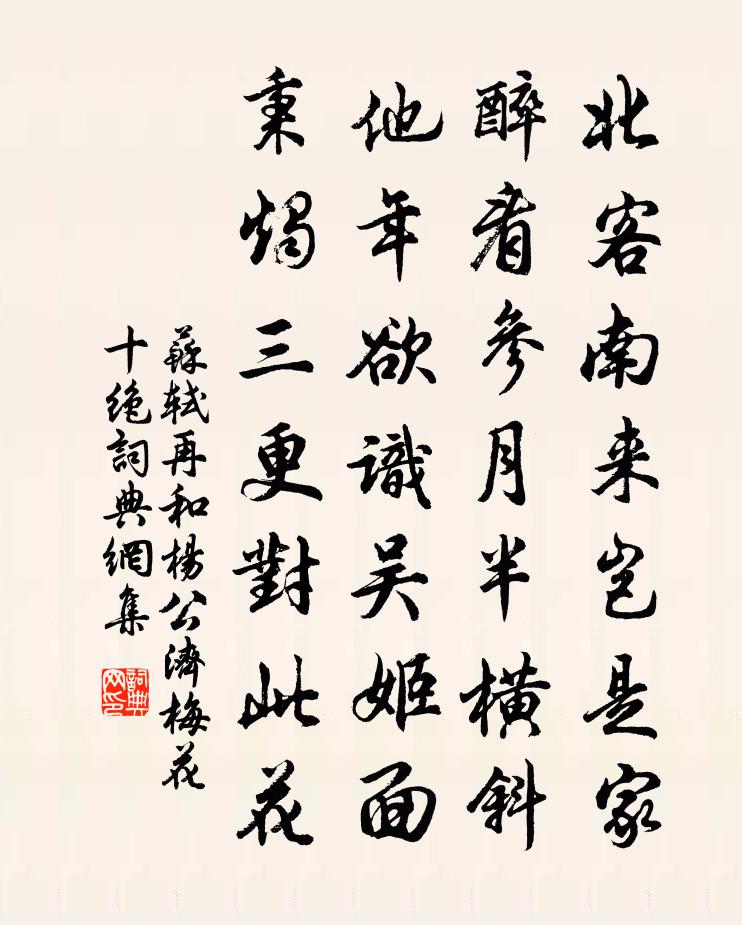 北客南来豈是家
醉看參月半橫斜
他年欲識吴姬面
秉燭三更對此花
蘇軾再和楊公濟梅花
十絶詞典網集
詞典網印